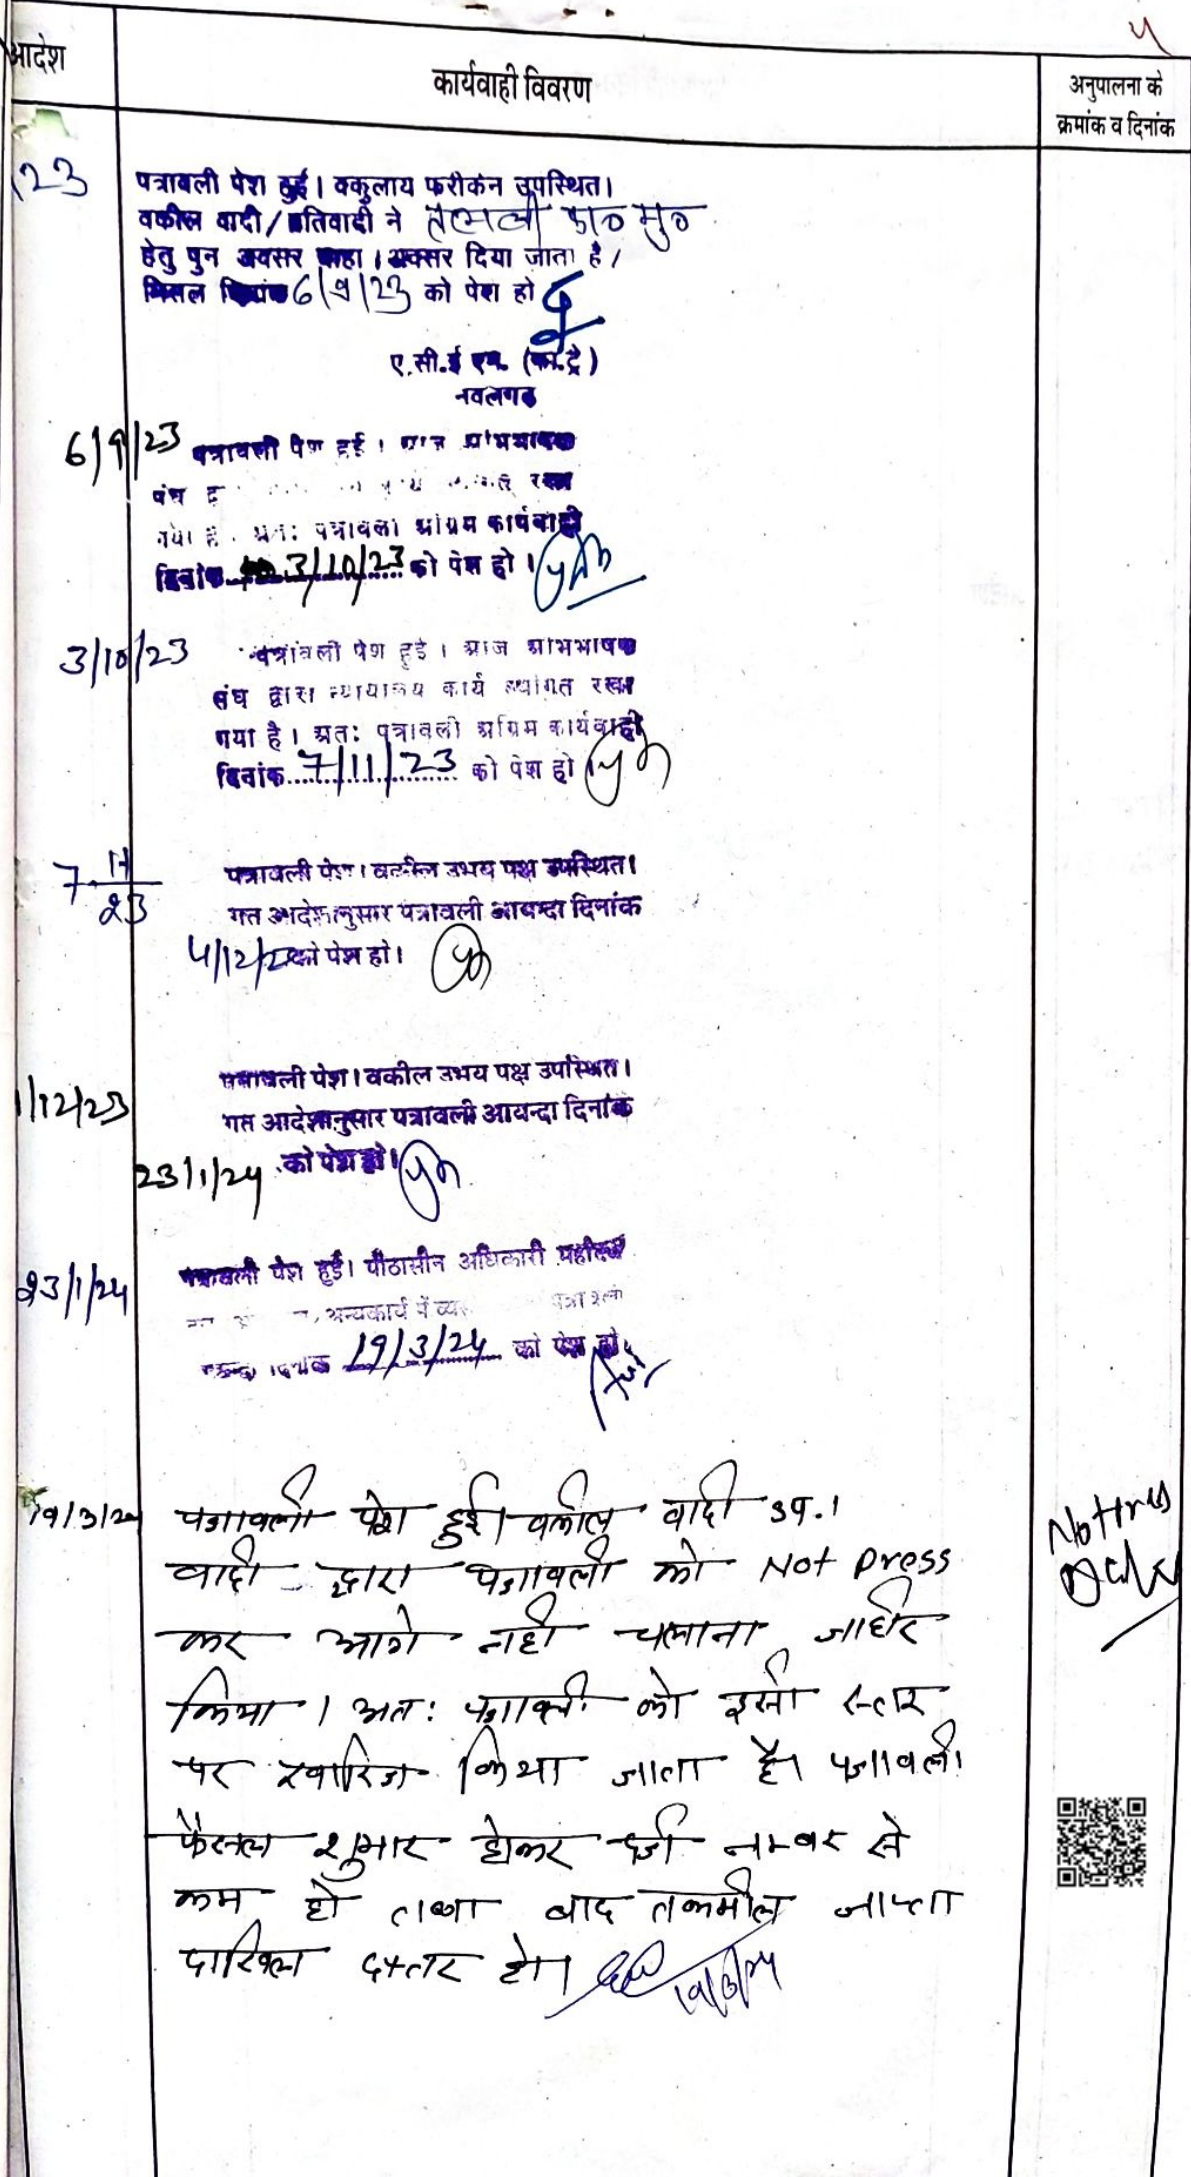 आदेश
कार्यवाही विवरण
अनुपालना के
क्रमांक व दिनांक
23
पत्रावली पेश हुई। वकुलाय फरीकन उपस्थित।
वकील वादी/प्रतिवादी ने तलबी
हेतु पुन अवसर चाहा। अवसर दिया जाता है/
मिसल दिनांक 6/9/23 को पेश हो
ए.सी.ई एम. (फा.ट्रे)
नवलगढ
6/9/23 पत्रावली पेश हुई। आज अभिभाषक
संघ रखा
गया है. अतः पत्रावली अग्रिम कार्यवाही
दिनांक 3/10/23 को पेश हो।
3/10/23 पत्रावली पेश हुई। आज अभिभाषक
संघ द्वारा न्यायालय कार्य स्थगित रखा
गया है। अतः पत्रावली अग्रिम कार्यवाही
दिनांक 7/11/23 को पेश हो
7 11/23 पत्रावली पेश। वकील उभय पक्ष उपस्थित।
गत आदेशानुसार पत्रावली आयन्दा दिनांक
4/12/2 को पेश हो।
1/12/23 पत्रावली पेश। वकील उभय पक्ष उपस्थित।
गत आदेशानुसार पत्रावली आयन्दा दिनांक
23/1/24 को पेश हो।
23/1/24 पत्रावली पेश हुई। पीठासीन अधिकारी महोदय
अन्यकार्य में
19/3/24 को पेश हो।
19/3/24 पत्रावली पेश हुई। वकील वादी उप.।
वादी द्वारा पत्रावली को Not press
कर आगे नही चलाना जाहीर
किया। अतः पत्रावली को इसी स्तर
पर खारिज किया जाता है। पत्रावली
फैसल शुमार होकर दर्ज नम्बर से
कम हो तथा बाद तकमील जाप्ता
दाखिल दफ्तर हो।